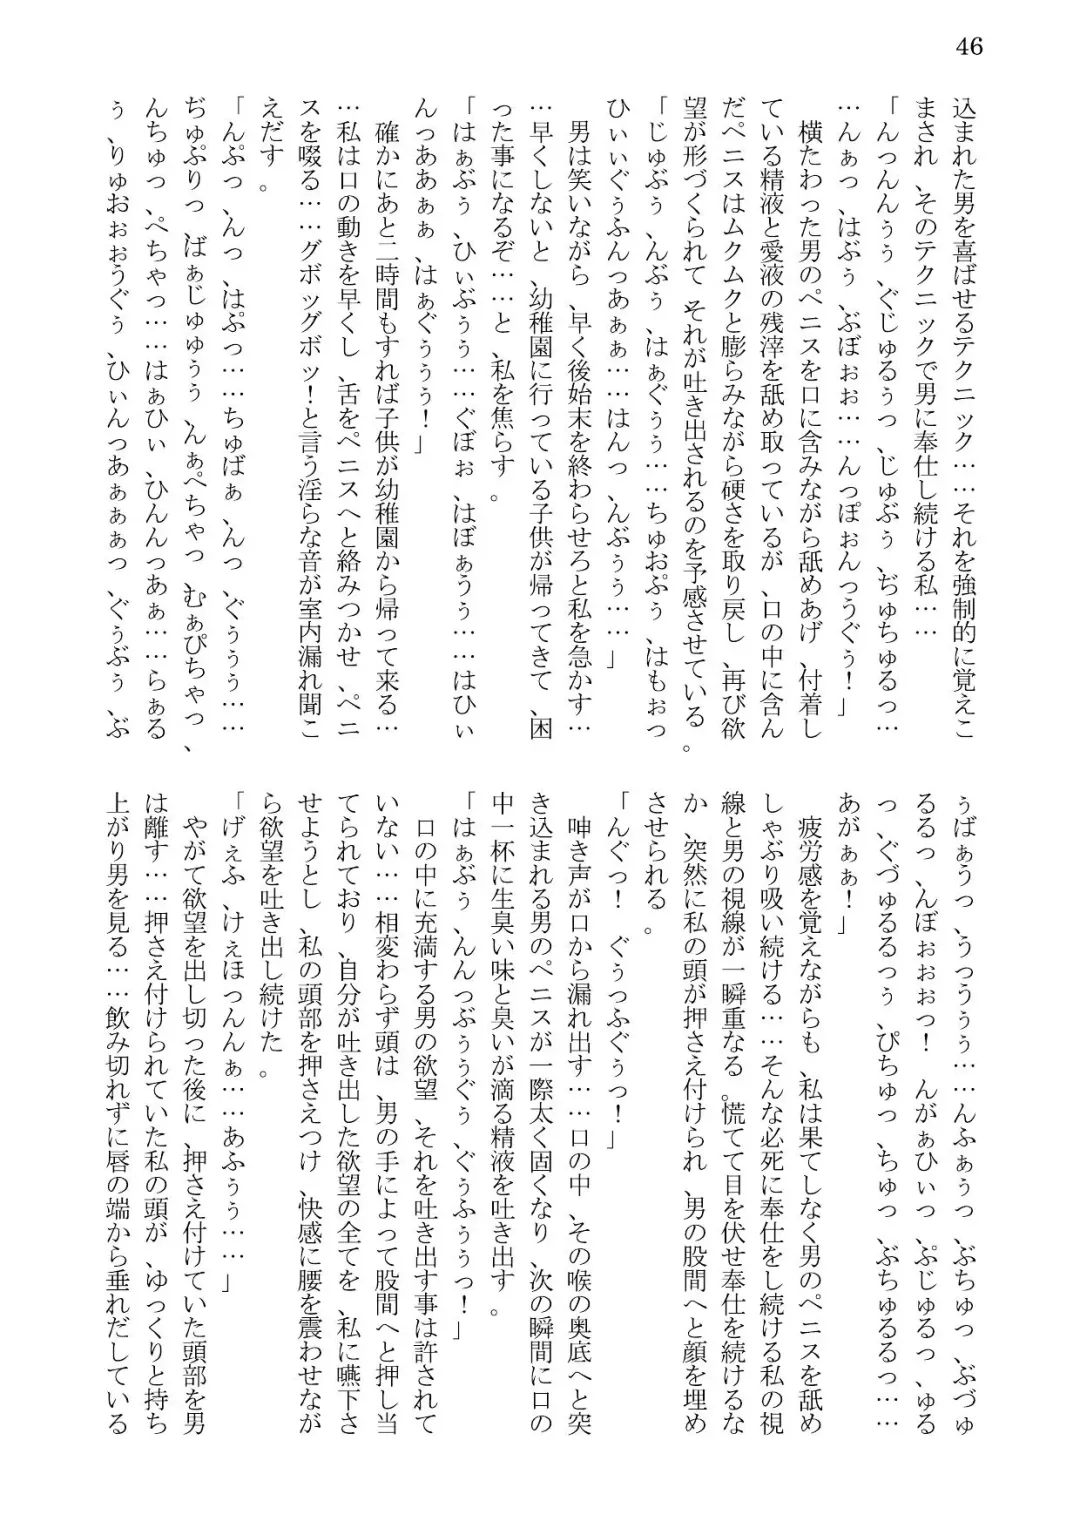 46
込まれた男を喜ばせるテクニック……それを強制的に覚えこ
まされ、そのテクニックで男に奉仕し続ける私……
「んっんんぅぅ、ぐじゅるぅっ、じゅぶぅ、ぢゅちゅるっ…
…んぁっ、はぶぅ、ぶぼぉぉ……んっぽぉんっうぐぅ！」
横たわった男のペニスを口に含みながら舐めあげ、付着し
ている精液と愛液の残滓を舐め取っているが、口の中に含ん
だペニスはムクムクと膨らみながら硬さを取り戻し、再び欲
望が形づくられて、それが吐き出されるのを予感させている。
「じゅぶぅ、んぶぅ、はぁぐぅぅ……ちゅおぷぅ、はもぉっ
ひぃぃぐぅふんっあぁぁ……はんっ、んぶぅぅ……」
男は笑いながら、早く後始末を終わらせろと私を急かす…
…早くしないと、幼稚園に行っている子供が帰ってきて、困
った事になるぞ……と、私を焦らす。
「はぁぶぅ、ひぃぶぅぅ……ぐぼぉ、はぼぁうぅ……はひぃ
んっああぁぁ、はぁぐぅぅぅ！」
確かにあと二時間もすれば子供が幼稚園から帰って来る…
…私は口の動きを早くし、舌をペニスへと絡みつかせ、ペニ
スを啜る……グボッグボッ！と言う淫らな音が室内漏れ聞こ
えだす。
「んぷっ、んっ、はぷっ……ちゅばぁ、んっ、ぐぅぅぅ……
ぢゅぷりっ、ばぁじゅゅぅぅ、んぁぺちゃっ、むぁぴちゃっ、
んちゅっ、ぺちゃっ……はぁひぃ、ひんんっあぁ……らぁる
ぅ、りゅおぉぉうぐぅ、ひぃんっあぁぁぁっ、ぐぅぶぅ、ぶ
ぅばぁうっ、うっうぅぅ……んふぁぅっ、ぶちゅっ、ぶづゅ
るるっ、んぼぉぉぉっ！　んがぁひぃっ、ぷじゅるっ、ゅる
っ、ぐづゅるるっぅ、ぴちゅっ、ちゅっ、ぶちゅるるっ……
あがぁぁ！」
疲労感を覚えながらも、私は果てしなく男のペニスを舐め
しゃぶり吸い続ける……そんな必死に奉仕をし続ける私の視
線と男の視線が一瞬重なる。慌てて目を伏せ奉仕を続けるな
か、突然に私の頭が押さえ付けられ、男の股間へと顔を埋め
させられる。
「んぐっ！　ぐぅっふぐぅっ！」
呻き声が口から漏れ出す……口の中、その喉の奥底へと突
き込まれる男のペニスが一際太く固くなり、次の瞬間に口の
中一杯に生臭い味と臭いが滴る精液を吐き出す。
「はぁぶぅ、んんっぶぅぅぐぅ、ぐぅふぅぅっ！」
口の中に充満する男の欲望、それを吐き出す事は許されて
いない……相変わらず頭は、男の手によって股間へと押し当
てられており、自分が吐き出した欲望の全てを、私に嚥下さ
せようとし、私の頭部を押さえつけ、快感に腰を震わせなが
ら欲望を吐き出し続けた。
「げぇふ、けぇほっんんぁ……あふぅぅ……」
やがて欲望を出し切った後に、押さえ付けていた頭部を男
は離す……押さえ付けられていた私の頭が、ゆっくりと持ち
上がり男を見る……飲み切れずに唇の端から垂れだしている